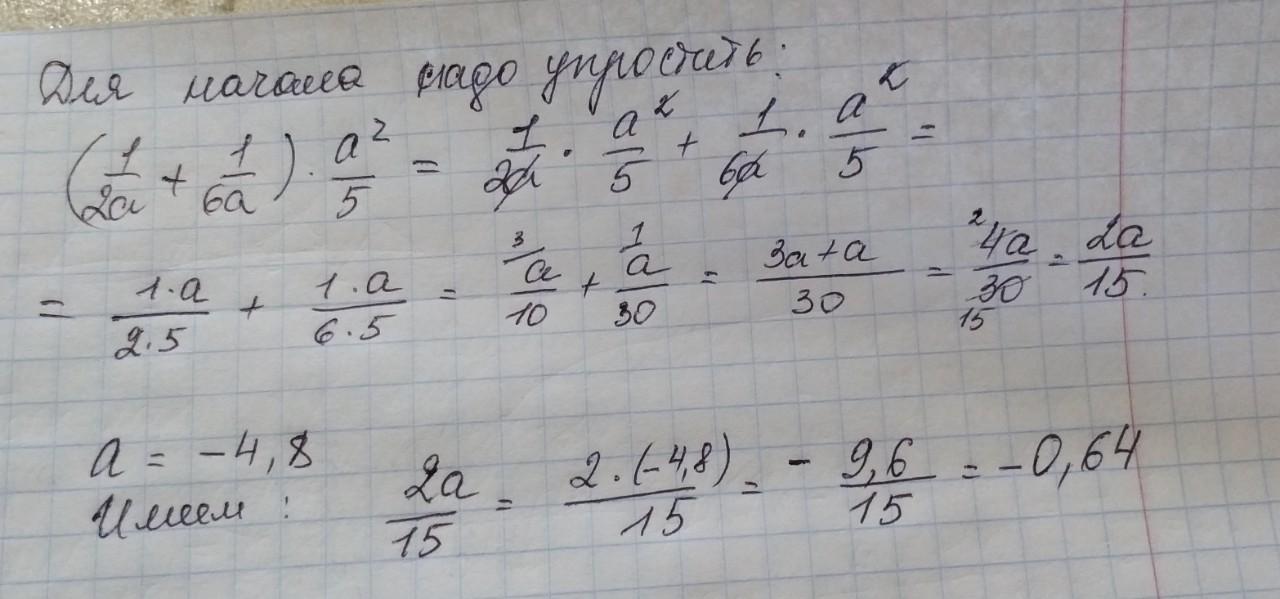 Для начала надо упростить:
(1/2a + 1/6a) · a²/5 = 1/2a · a²/5 + 1/6a · a²/5 =
= 1·a/2·5 + 1·a/6·5 = ³a/10 + ¹a/30 = 3a+a/30 = ²4a/30 15 = 2a/15.
a = -4,8
Имеем: 2a/15 = 2·(-4,8)/15 = - 9,6/15 = -0,64